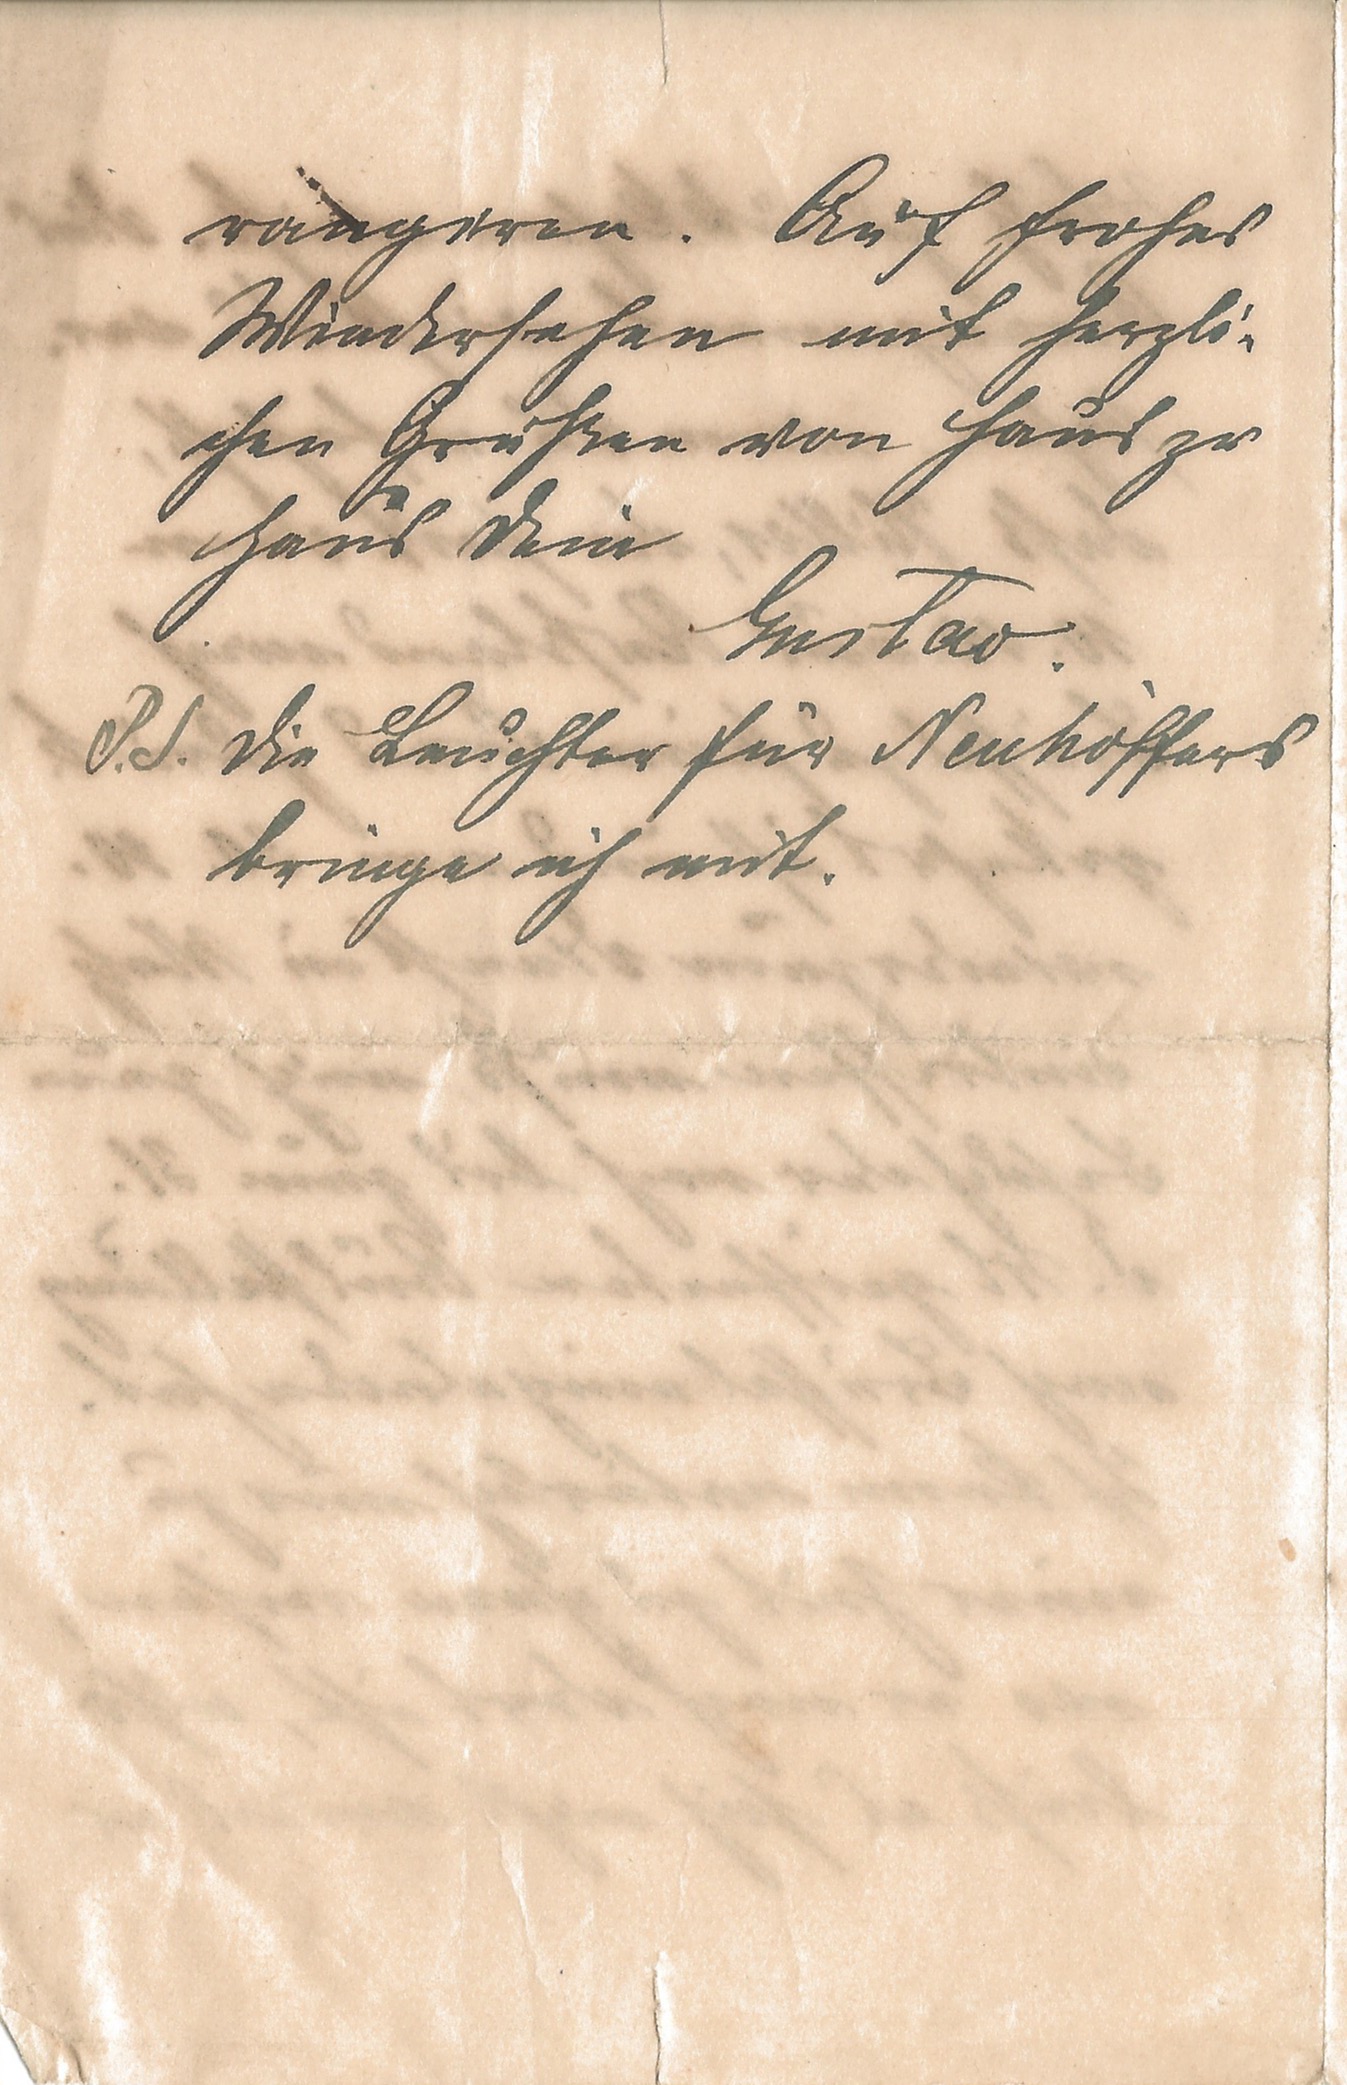 rangieren. Auf frohes
Wiedersehen mit herzli-
chen Grüßen von Haus zu
Haus Dein
Gustav.
P.S. Die Leuchter für Neuhöffers
bringe ich mit.